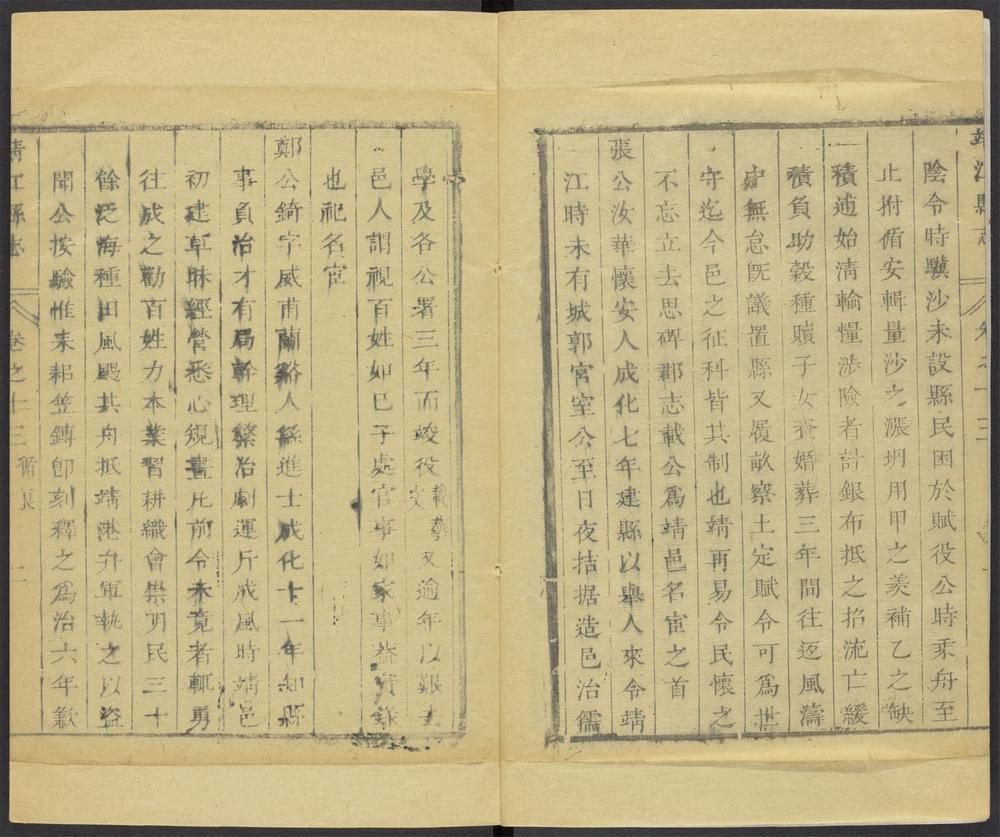 靖江縣志 卷之十三
陰令時驥沙未設縣民困於賦役公時乘舟至
止拊循安輯量沙之漲坍用甲之羨補乙之缺
積逋始淸輸糧涉險者計銀布抵之招流亡緩
積負助穀種贖子女資婚葬三年間往返風濤
中無怠旣議置縣又履畝察土定賦令可爲世
守迄今邑之征科皆其制也靖再易令民懷之
不忘立去思碑郡志載公爲靖邑名宦之首
張公汝華懷安人成化七年建縣以舉人來令靖
江時未有城郭官室公至日夜拮据造邑治儒
學及各公署三年而竣役載藝文又逾年以艱去
邑人謂視百姓如巳子處官事如家事
也祀名宦
鄭公錡字威甫蘭谿人繇進士成化十一年知縣
事負治才有局幹理繁治劇運斤成風時靖邑
初建草昧經營悉心規畫凡前令未竟者輒勇
往成之勸百姓力本業習耕織會崇明民三十
餘泛海種田風颺其舟抵靖港舟軍執之以盜
聞公按驗惟耒耜笠鎛卽刻釋之爲治六年歉
靖江縣志 卷之十三 循良 二